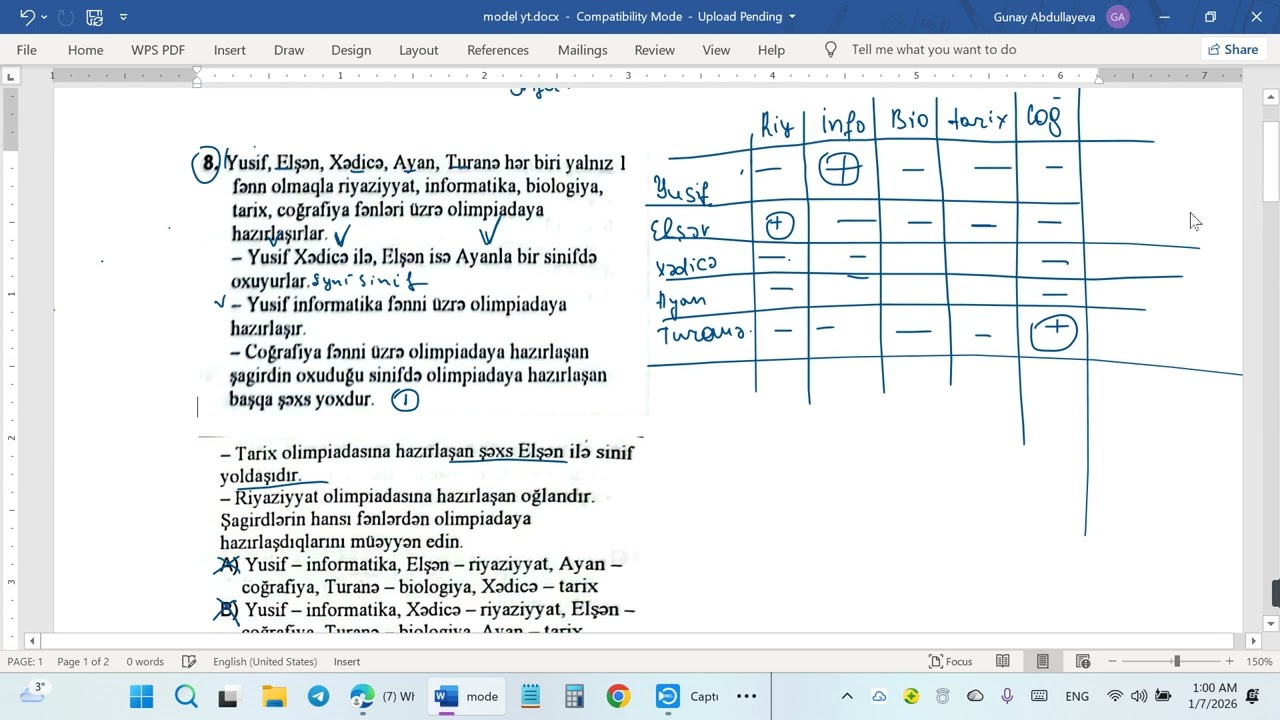 model yt.docx - Compatibility Mode - Upload Pending
Gunay Abdullayeva GA
File Home WPS PDF Insert Draw Design Layout References Mailings Review View Help Tell me what you want to do Share
1 1 2 3 4 5 6 7
Riy info Bio tarix Coğ
8. Yusif, Elşən, Xədicə, Ayan, Turanə hər biri yalnız 1
fənn olmaqla riyaziyyat, informatika, biologiya,
tarix, coğrafiya fənləri üzrə olimpiadaya
hazırlaşırlar.
– Yusif Xədicə ilə, Elşən isə Ayanla bir sinifdə
oxuyurlar. eyni sinif
– Yusif informatika fənni üzrə olimpiadaya
hazırlaşır.
– Coğrafiya fənni üzrə olimpiadaya hazırlaşan
şagirdin oxuduğu sinifdə olimpiadaya hazırlaşan
başqa şəxs yoxdur. 1
Yusif – + – – –
Elşən + – – – –
Xədicə – – –
Ayan – –
Turanə – – – – +
– Tarix olimpiadasına hazırlaşan şəxs Elşən ilə sinif
yoldaşıdır.
– Riyaziyyat olimpiadasına hazırlaşan oğlandır.
Şagirdlərin hansı fənlərdən olimpiadaya
hazırlaşdıqlarını müəyyən edin.
A) Yusif – informatika, Elşən – riyaziyyat, Ayan –
coğrafiya, Turanə – biologiya, Xədicə – tarix
B) Yusif – informatika, Xədicə – riyaziyyat, Elşən –
coğrafiya, Turanə – biologiya, Ayan – tarix
PAGE: 1 Page 1 of 2 0 words English (United States) Insert Focus 150%
3° (7) Wh mode Captu ENG 1:00 AM
1/7/2026